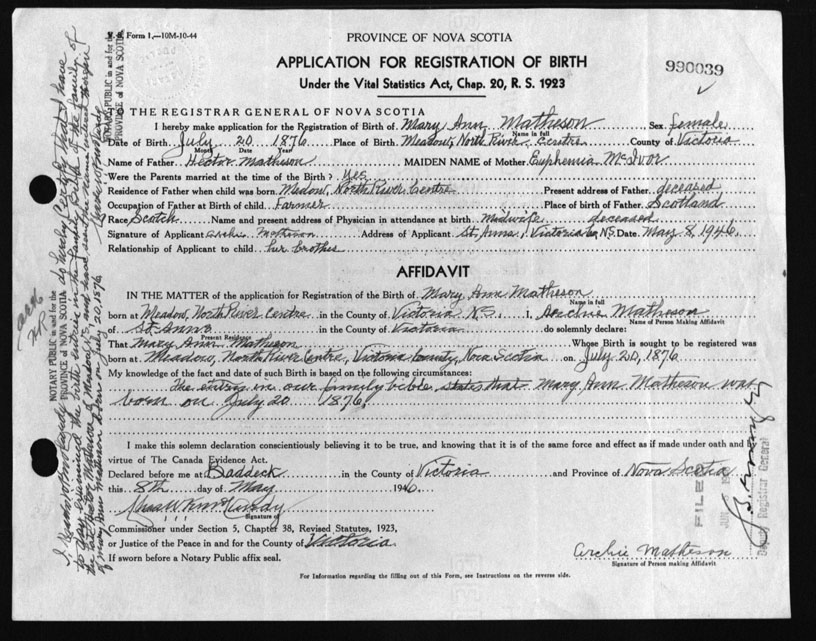 Form 1,—10M-10-44
PROVINCE OF NOVA SCOTIA
APPLICATION FOR REGISTRATION OF BIRTH
Under the Vital Statistics Act, Chap. 20, R. S. 1923
990039
TO THE REGISTRAR GENERAL OF NOVA SCOTIA
I hereby make application for the Registration of Birth of Mary Ann Matheson Sex female
Name in full
Date of Birth July 20 1876 Place of Birth Meadow, North River Centre County of Victoria
Month Date Year
Name of Father Hector Matheson MAIDEN NAME of Mother Euphemia McIvor
Were the Parents married at the time of the Birth? Yes
Residence of Father when child was born Medow, North River Centre Present address of Father deceased
Occupation of Father at Birth of child Farmer Place of birth of Father Scotland
Race Scotch Name and present address of Physician in attendance at birth Midwife deceased
Signature of Applicant Archie Matheson Address of Applicant St. Anns, Victoria Co, N.S. Date May 8, 1946
Relationship of Applicant to child her brother
AFFIDAVIT
IN THE MATTER of the application for Registration of the Birth of Mary Ann Matheson
Name in full
born at Meadow, North River Centre in the County of Victoria N.S. I, Archie Matheson
Name of Person Making Affidavit
of St Anns in the County of Victoria do solemnly declare:
Present Residence
That Mary Ann Matheson Whose Birth is sought to be registered was
born at Meadow, North River Centre, Victoria County, Nova Scotia on July 20, 1876
My knowledge of the fact and date of such Birth is based on the following circumstances:
The entry in our family bible states that Mary Ann Matheson was
born on July 20 1876.
I make this solemn declaration conscientiously believing it to be true, and knowing that it is of the same force and effect as if made under oath and by
virtue of The Canada Evidence Act.
Declared before me at Baddeck in the County of Victoria and Province of Nova Scotia
this 8th day of May 1946
Signature of
Commissioner under Section 5, Chapter 38, Revised Statutes, 1923,
or Justice of the Peace in and for the County of Victoria
If sworn before a Notary Public affix seal.
Archie Matheson
Signature of Person making Affidavit
For Information regarding the filling out of this Form, see Instructions on the reverse side.
NOTARY PUBLIC in and for the
PROVINCE OF NOVA SCOTIA
do hereby certify that I have
NOTARY PUBLIC in and for the
PROVINCE OF NOVA SCOTIA
FILED
Deputy Registrar General